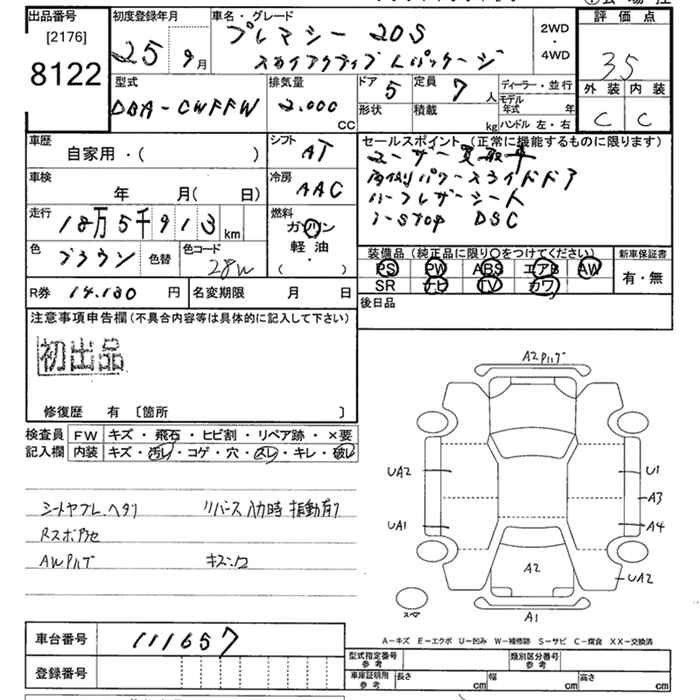 出品番号
[2176]
8122
初度登録年月
25 9月
車名・グレード
プレマシー 20S
スカイアクティブ Lパッケージ
2WD
・
4WD
評価点
3.5
外装 内装
C C
型式
DBA-CWFFW
排気量
2.000
CC
ドア 5
形状
定員 7 人
積載 kg
ディーラー・並行
モデル年式 年
ハンドル 左・右
車歴
自家用・( )
シフト
AT
車検
年 月( 日)
冷房
AAC
走行
18万5千913 km
燃料
ガソリン
軽油
・
( )
色
ブラウン
色替
色コード
28W
R券 14.130 円
名変期限 月 日
セールスポイント (正常に機能するものに限ります)
ユーザー買取車
両側パワースライドドア
ハーフレザーシート
i-stop DSC
装備品(純正品に限り○をつけてください)
PS PW ABS エアB AW
SR ナビ TV カワ
新車保証書
有・無
後日品
注意事項申告欄(不具合内容等は具体的に記入して下さい)
初出品
修復歴 有 〔箇所 〕
検査員記入欄
FW キズ・飛石・ヒビ割・リペア跡・×要
内装 キズ・汚レ・コゲ・穴・スレ・キレ・破レ
シートヤブレ.ヘタリ リバース入力時 振動有り
Rスポアセ
AWPハゲ キズ.凹
A2Pハゲ
UA2
U1
A3
UA1
A4
A2
UA2
A1
スペア
A-キズ E-エクボ U-凹み W-補修跡 S-サビ C-腐食 XX-交換済
車台番号 111657
登録番号
型式指定番号 参考
類別区分番号 参考
車庫証明用 参考
長さ cm 幅 cm 高さ cm